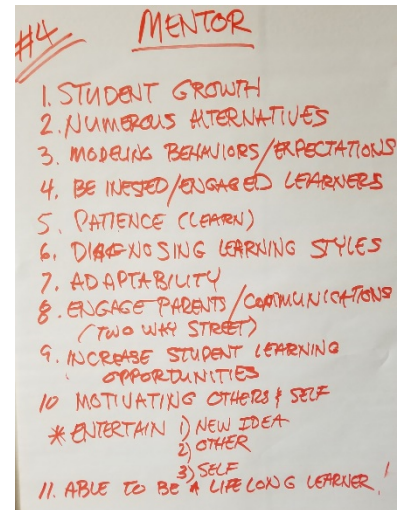 #4 MENTOR
1. STUDENT GROWTH
2. NUMEROUS ALTERNATIVES
3. MODELING BEHAVIORS/EXPECTATIONS
4. BE INESED/ENGAGED LEARNERS
5. PATIENCE (LEARN)
6. DIAGNOSING LEARNING STYLES
7. ADAPTABILITY
8. ENGAGE PARENTS/COMMUNICATIONS
(TWO WAY STREET)
9. INCREASE STUDENT LEARNING
OPPORTUNITIES
10 MOTIVATING OTHERS & SELF
* ENTERTAIN 1) NEW IDEA
2) OTHER
3) SELF
11. ABLE TO BE A LIFE LONG LEARNER!